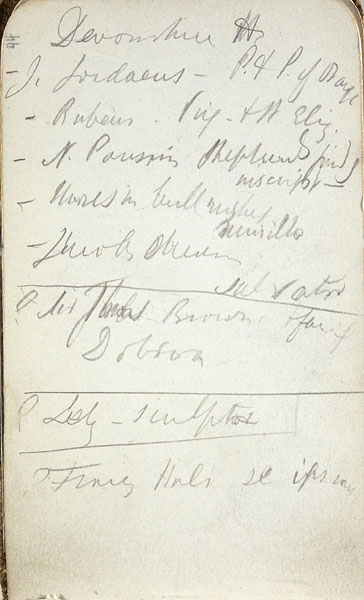 44
Devonshire H.
- J. Jordaens - P. & P. of Orange
- Rubens. Virg. & St Eliz.
- N. Poussin Shepherds find
inscript -
- Murillo
- Jacobs Dream
Salvator
O Sir Thomas Browne & family
Dobson
O Lely - sculptor
O Franz Hals se ipsum